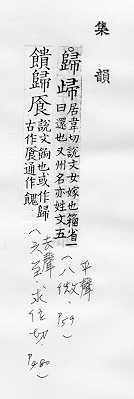 集韻
歸㱕居韋切說文女嫁也籀省一
曰還也又州名亦姓文五
(平聲
八微,P59)
饋歸𩚬說文餉也或作歸
古作𩚬通作餽
(去聲,求位切,P480)